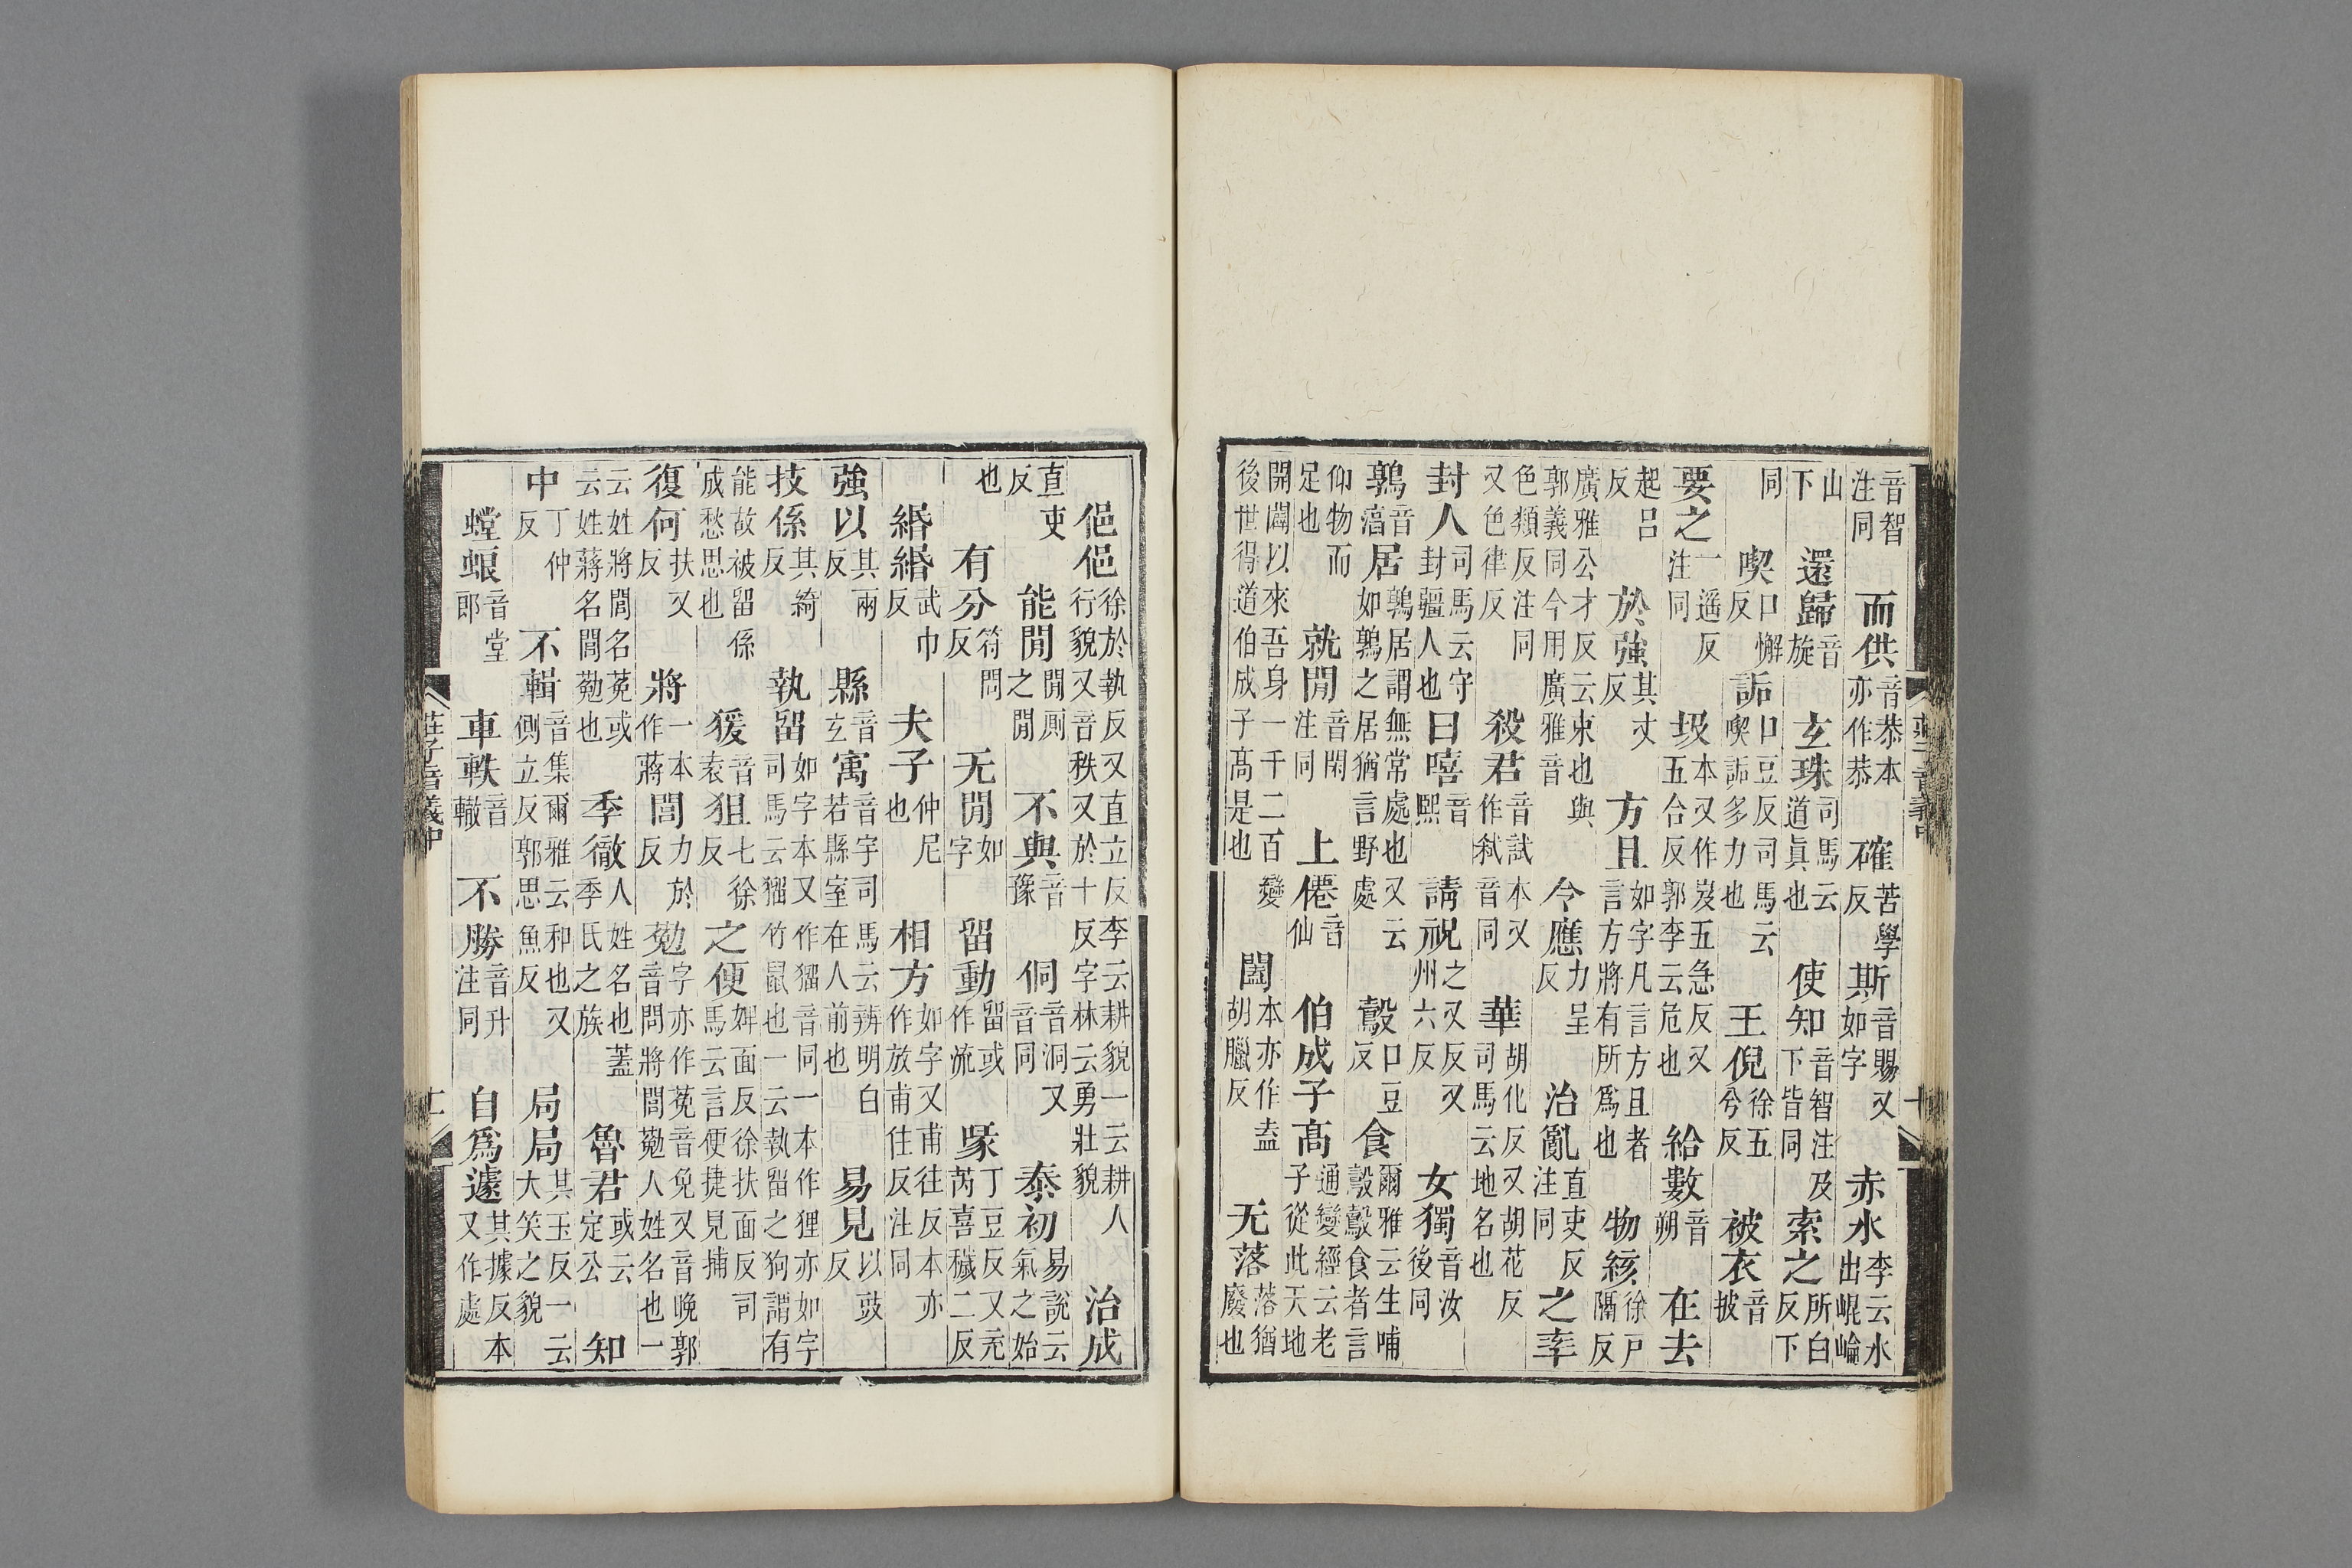 音智注同而供音恭本亦作恭確苦學反斯音賜又如字赤水李云水出崐崘
山下還歸音旋玄珠司馬云道眞也使知音智注及下皆同索之所白反下
同喫口懈反詬口豆反司馬云喫詬多力也王倪徐五兮反被衣音披
要之一遥反注同圾本又作岌五急反又五合反郭李云危也給數音朔在去
起呂反於強其丈反方且如字凡言方且者言方將有所爲也物絯徐戸隔反
廣雅公才反云束也與郭義同今用廣雅音令應力呈反治亂直吏反注同之率
色類反注同又色律反殺君音試本又作弑音同華胡化反又胡花反司馬云地名也
封人司馬云守封疆人也曰嘻音熙請祝之又反又州六反女獨音汝後同
鶉音淳居鶉居謂無常處也又云如鶉之居猶言野處鷇口豆反食爾雅云生哺鷇鷇食者言
仰物而足也就閒音閑注同上僊音仙伯成子髙通變經云老子從此天地
開闢以來吾身一千二百變後世得道伯成子髙是也闔本亦作盍胡臘反无落落猶廢也
俋俋徐於執反又直立反李云耕貌一云耕人行貌又音秩又於十反字林云勇壯貌治成
直吏反能閒閒厠之閒不與音豫侗音洞又音同泰初易説云氣之始
也有分符問反无閒如字留動留或作流喙丁豆反又充芮喜穢二反
緡緡武巾反夫子仲尼也相方如字又甫往反本亦作放甫往反注同
強以其兩反縣音玄寓音宇司馬云辨明白若縣室在人前也易見以豉反
技係其綺反執留如字本又作㺉音同一本作狸亦如字司馬云㺉竹鼠也一云執留之狗謂有
能故被留係成愁思也猨音袁狙七徐反之便婢面反徐扶面反司馬云言便捷見捕
復何扶又反將一本作蔣閭力於反葂字亦作莬音免又音晚郭音問將閭葂人姓名也一
云姓將閭名莬或云姓蔣名閭葂也季徹人姓名也蓋季氏之族魯君或云定公知
中丁仲反不輯音集爾雅云和也又側立反郭思魚反局局其玉反一云大笑之貌
螳蜋音堂郎車軼音轍不勝音升注同自爲遽其據反本又作處
莊子音義中